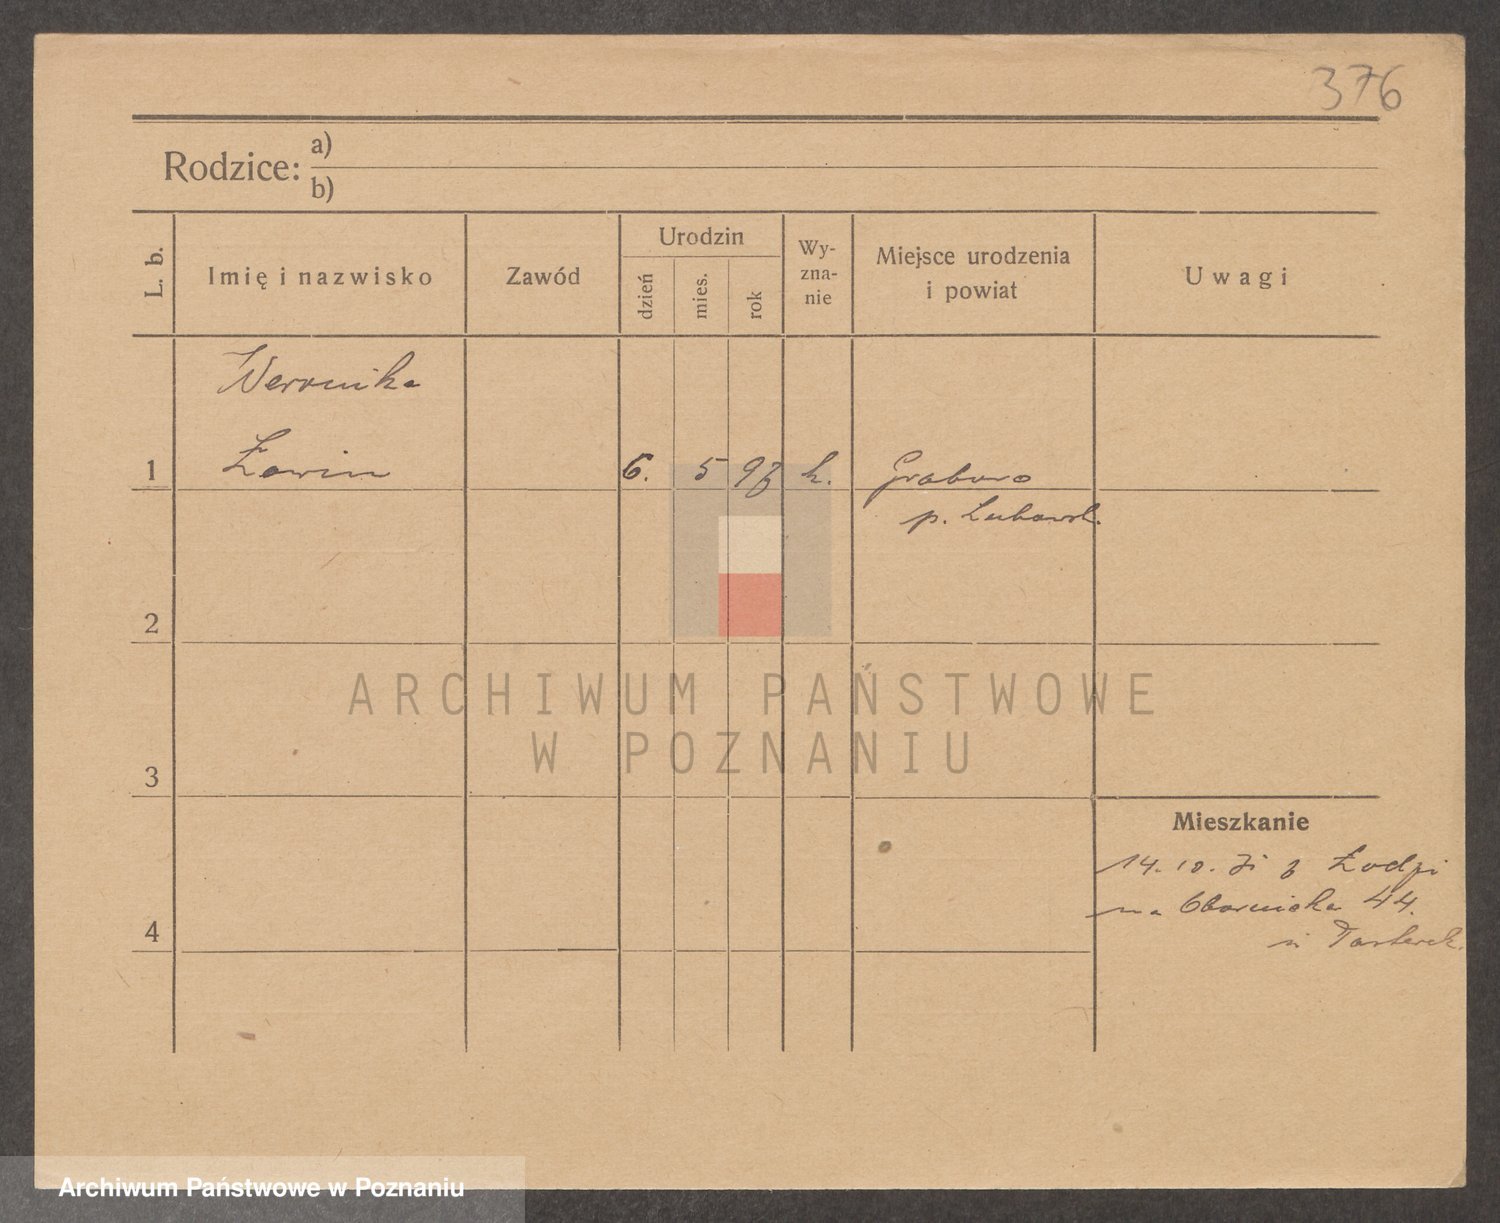 376
Rodzice: a)
b)
L. b.
Imię i nazwisko
Zawód
Urodzin
dzień
mies.
rok
Wy-
zna-
nie
Miejsce urodzenia
i powiat
Uwagi
Weronika
1 Żawin 6. 5 97 k. Grabowo
p. Lubawsk.
2
ARCHIWUM PAŃSTWOWE
W POZNANIU
3
Mieszkanie
14. 10. z Łodzi
na Obornicka 44.
4
Archiwum Państwowe w Poznaniu